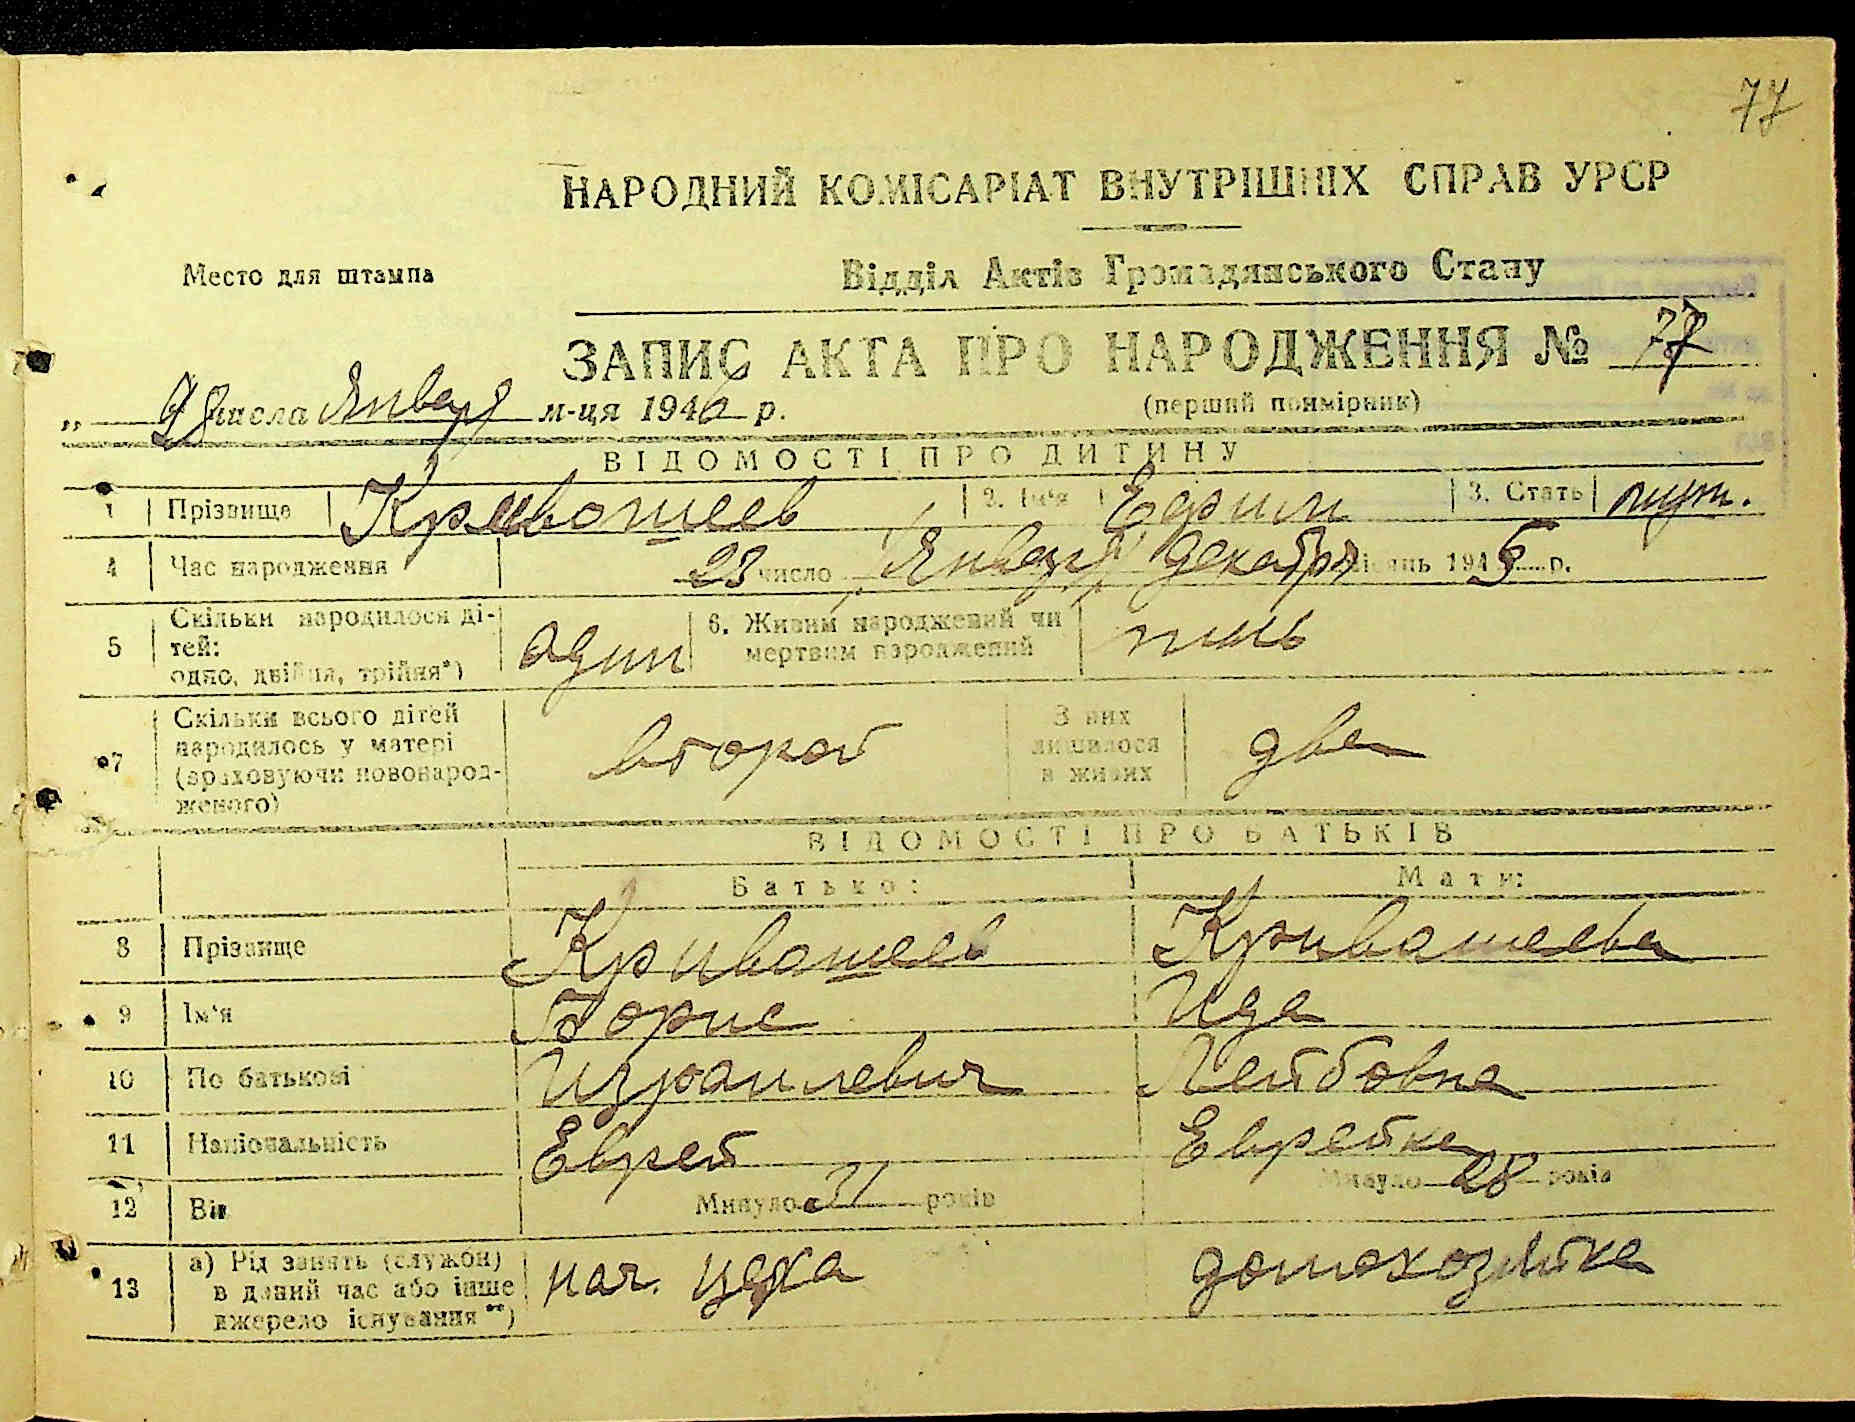 77
НАРОДНИЙ КОМІСАРІАТ ВНУТРІШНІХ СПРАВ УРСР
Место для штампа
Відділ Актів Громадянського Стану
ЗАПИС АКТА ПРО НАРОДЖЕННЯ № 77
„ 9 числа Января м-ця 1946 р.
(перший примірник)
ВІДОМОСТІ ПРО ДИТИНУ
1 Прізвище Кривошеев 2. Ім'я Ефим 3. Стать муж.
4 Час народження 23 число "Января" декабря місяць 1945 р.
5 Скільки народилося ді-
тей:
одно, двійня, трійня*) один
6. Живим народжений чи
мертвим народжений
7 Скільки всього дітей
народилось у матері
(враховуючи новонарод-
женого) второй
З них
лишилося
в живих два
ВІДОМОСТІ ПРО БАТЬКІВ
Батько: Мати:
8 Прізвище Кривошеев Кривошеева
9 Ім'я Борис Ида
10 По батькові Израилевич Лейбовна
11 Національність Еврей Еврейка
12 Вік Минуло 31 років Минуло 28 років
13 а) Рід занять (служби)
в даний час або інше
джерело існування**) нач. цеха домохозяйка